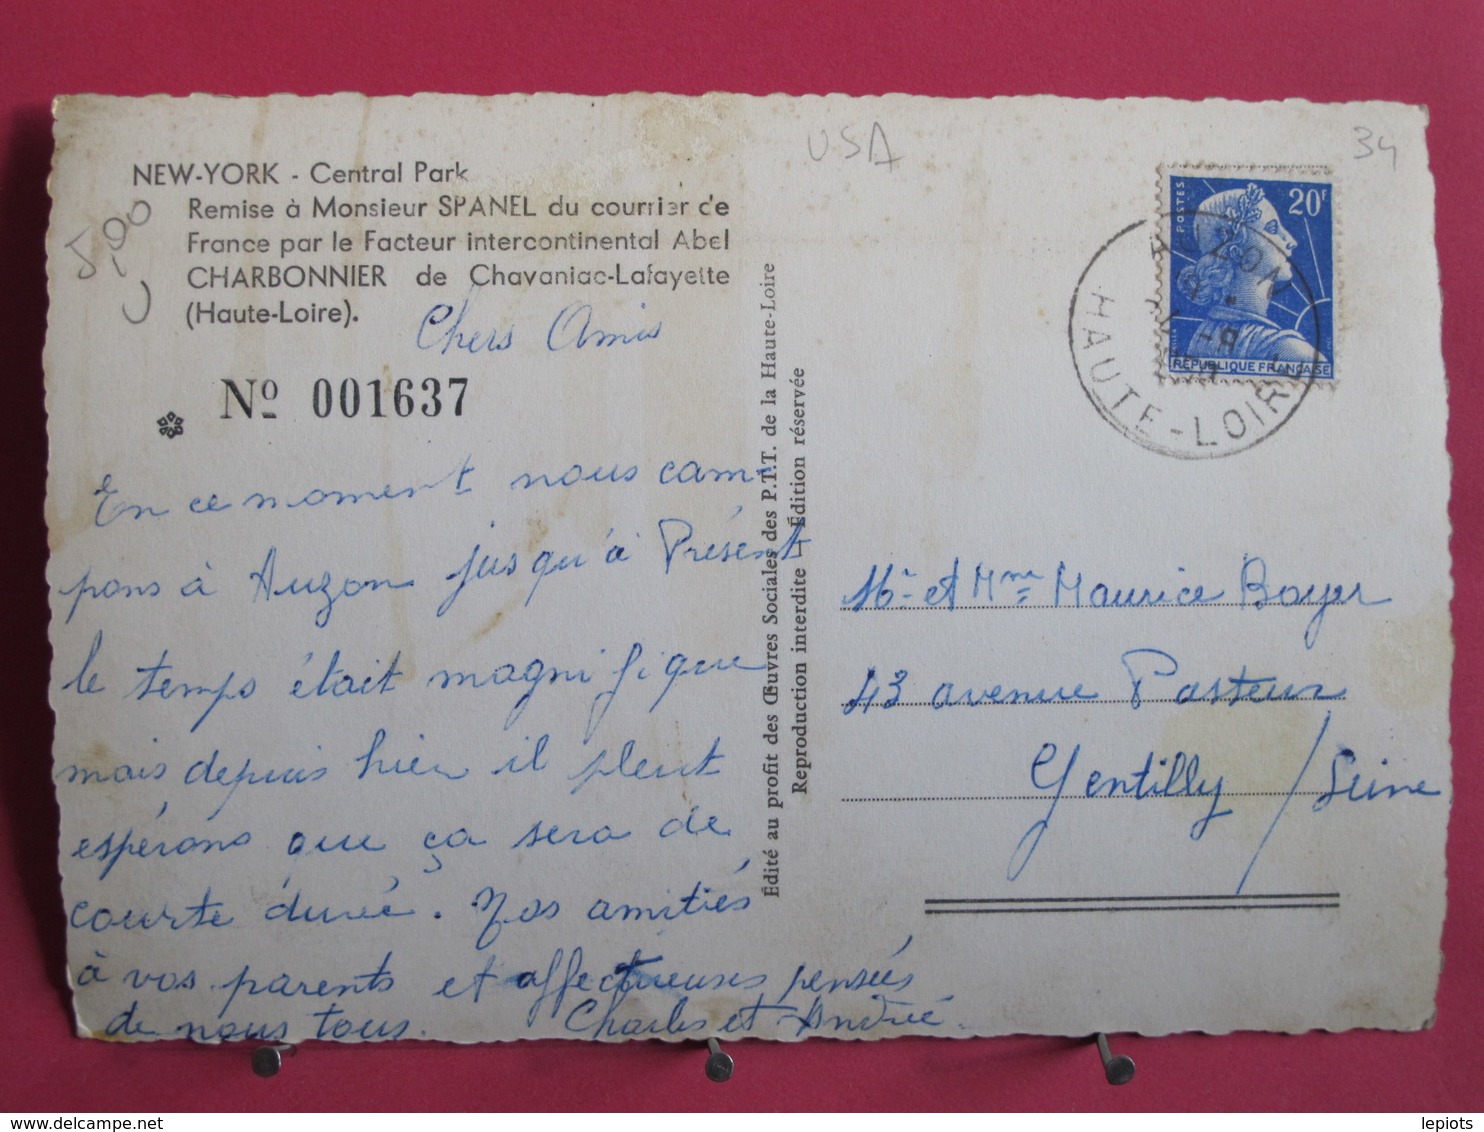 USA
34
NEW-YORK - Central Park
Remise à Monsieur SPANEL du courrier de
France par le Facteur intercontinental Abel
CHARBONNIER de Chavaniac-Lafayette
(Haute-Loire).
5,00
Nº 001637
Chers Amis
En ce moment nous cam-
pons à Auzon jusqu'à Présent
le temps était magnifique
mais depuis hier il pleut
espérons que ça sera de
courte durée. Nos amitiés
à vos parents et affectueuses pensées
de nous tous. Charles et Andrée
Édité au profit des Œuvres Sociales des P.T.T. de la Haute-Loire
Reproduction interdite — Édition réservée
POSTES
20F
REPUBLIQUE FRANÇAISE
AUZON
HAUTE-LOIRE
Mr et Mme Maurice Boyer
43 avenue Pasteur
Gentilly / Seine
delcampe.net
lepiots